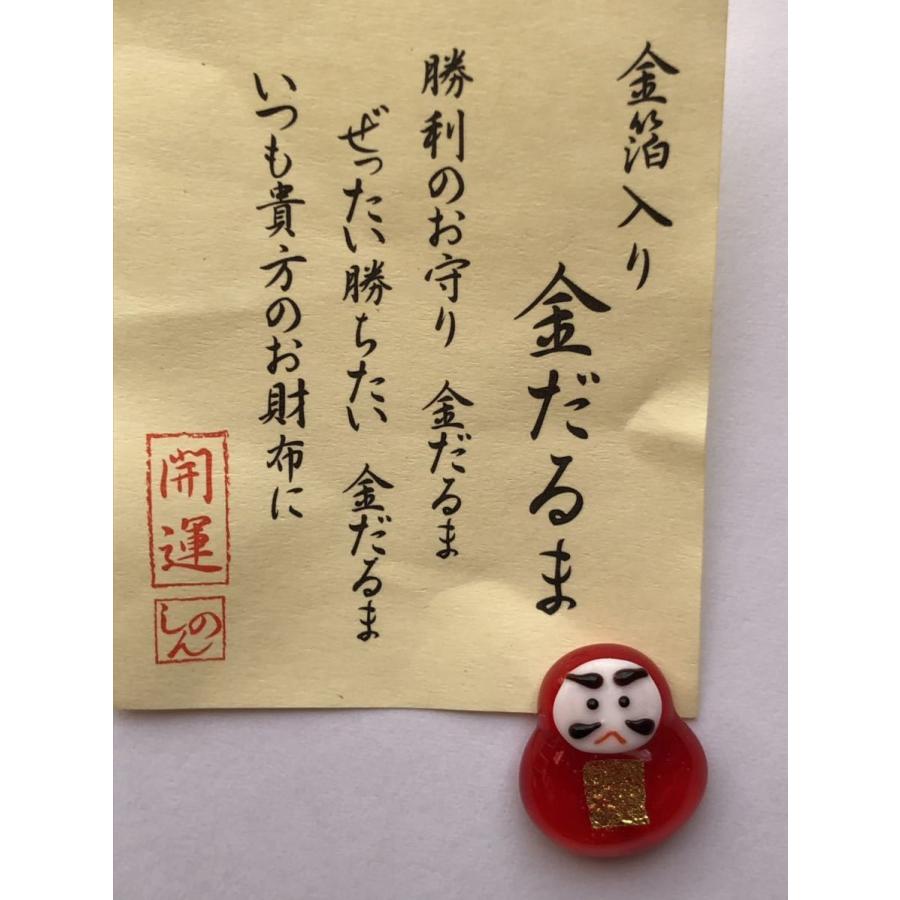 金箔入り
金だるま
勝利のお守り 金だるま
ぜったい勝ちたい 金だるま
いつも貴方のお財布に
開運
しのん